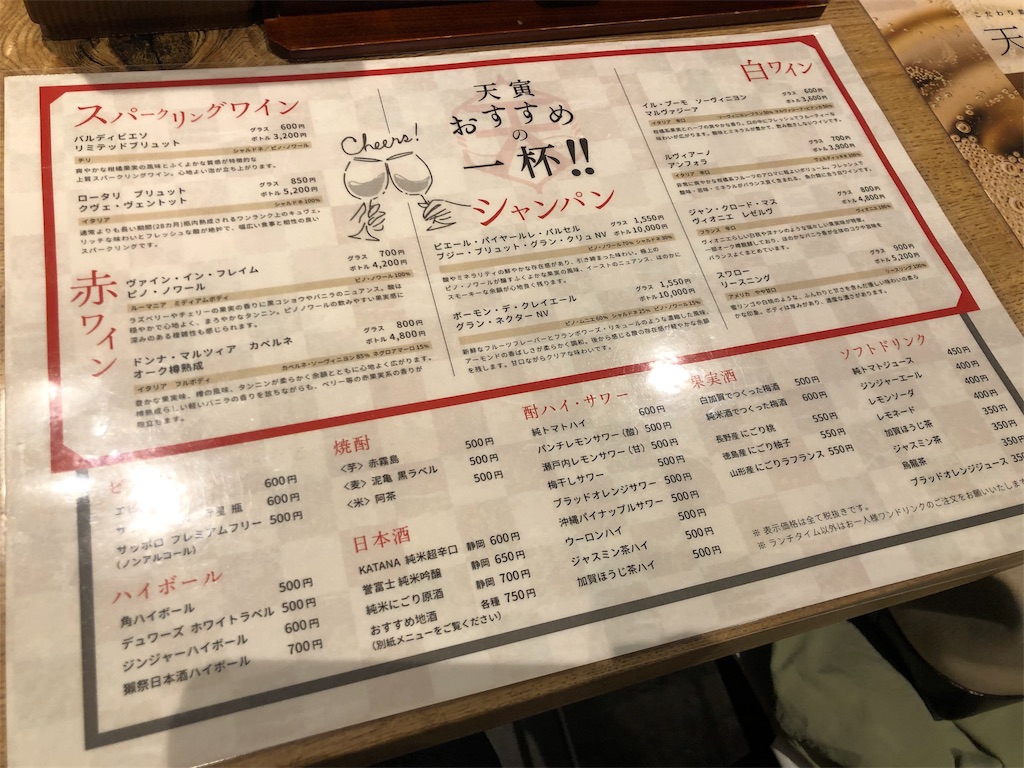 天寅
おすすめ
の
一杯!!
Cheers!
スパークリングワイン
バルディビエソ グラス 600円
リミテッドブリュット ボトル 3,200円
チリ シャルドネ/ピノ・ノワール
爽やかな柑橘果実の風味とふくよかな質感が特徴的な
上質スパークリングワイン。心地よい泡が立ち上がります。
ロータリ ブリュット グラス 850円
クヴェ・ヴェントット ボトル 5,200円
イタリア シャルドネ100%
通常よりも長い期間(28カ月)瓶内熟成されるワンランク上のキュヴェ。
リッチな味わいとフレッシュな酸が絶妙で、幅広い食事と相性の良い
スパークリングです。
赤ワイン
ヴァイン・イン・フレイム グラス 700円
ピノ・ノワール ボトル 4,200円
ルーマニア ミディアムボディ ピノ・ノワール100%
ラズベリーやチェリーの果実の香りに黒コショウやバニラのニュアンス。酸は
穏やかで心地よく、まろやかなタンニン。ピノノワールの飲みやすい果実感に
深みのある複雑性も感じられます。
ドンナ・マルツィア カベルネ グラス 800円
オーク樽熟成 ボトル 4,800円
イタリア フルボディ カベルネ・ソーヴィニヨン 85% ネグロアマーロ 15%
豊かな果実味、樽の風味、タンニンが柔らかく余韻とともに心地よく広がります。
樽熟成らしい軽いバニラの香りを放ちながらも、ベリー等の赤果実系の香りが
際立ちます。
シャンパン
ピエール・パイヤールレ・パルセル グラス 1,550円
ブジー・ブリュット・グラン・クリュ NV ボトル 10,000円
ピノ・ノワール 70% シャルドネ 30%
酸やミネラリティの鮮やかな存在感があり、引き締まった味わい。極上の
ピノ・ノワールが醸すふくよかな果実の風味、イーストのニュアンス、ほのかに
スモーキーな余韻が心地良く残ります。
ボーモン・デ・クレイエール グラス 1,550円
グラン・ネクター NV ボトル 10,000円
ピノ・ムニエ 60% シャルドネ 25% ピノ・ノワール 15%
新鮮なフルーツフレーバーとフランボワーズ・リキュールのような濃縮した風味。
アーモンドの香ばしさが柔らかく調和。後から感じる酸の存在感が軽やかな余韻
を残します。甘口ながらクリアな味わいです。
白ワイン
イル・プーモ ソーヴィニヨン グラス 600円
マルヴァジーア ボトル 3,600円
イタリア 辛口
柑橘系果実とハーブの爽やかな香り。口の中にフレッシュでフルーティーな
味わいが広がります。酸味とミネラルが豊かで、飲み飽きしないワインです。
ルヴィアーノ 700円
アンフォラ ボトル 3,900円
イタリア 辛口 ヴェルディッキオ 100%
ジャン・クロード・マス グラス 800円
ヴィオニエ レゼルヴ ボトル 4,800円
フランス 辛口 ヴィオニエ 100%
スワロー グラス 900円
リースニング ボトル 5,200円
アメリカ やや甘口 リースリング 100%
600円
瓶 600円
サッポロ プレミアムフリー 500円
(ノンアルコール)
ハイボール
角ハイボール 500円
デュワーズ ホワイトラベル 500円
ジンジャーハイボール 600円
獺祭日本酒ハイボール 700円
焼酎
〈芋〉赤霧島 500円
〈麦〉泥亀 黒ラベル 500円
〈米〉阿茶 500円
日本酒
KATANA 純米超辛口 静岡 600円
誉富士 純米吟醸 静岡 650円
純米にごり原酒 静岡 700円
おすすめ地酒 各種 750円
(別紙メニューをご覧ください)
酎ハイ・サワー
純トマトハイ 600円
パンチレモンサワー(酸) 500円
瀬戸内レモンサワー(甘) 500円
梅干しサワー 500円
ブラッドオレンジサワー 500円
沖縄パイナップルサワー 500円
ウーロンハイ 500円
ジャスミン茶ハイ 500円
加賀ほうじ茶ハイ 500円
果実酒
白加賀でつくった梅酒 500円
純米酒でつくった梅酒 600円
長野産にごり桃 550円
徳島産にごり柚子 550円
山形産にごりラフランス 550円
ソフトドリンク
純トマトジュース 450円
ジンジャーエール 400円
レモンソーダ 400円
レモネード 400円
加賀ほうじ茶 350円
ジャスミン茶 350円
烏龍茶 350円
ブラッドオレンジジュース 350
※ 表示価格は全て税抜きです。
※ ランチタイム以外はお一人様ワンドリンクのご注文をお願いいたしま
こだわり
天